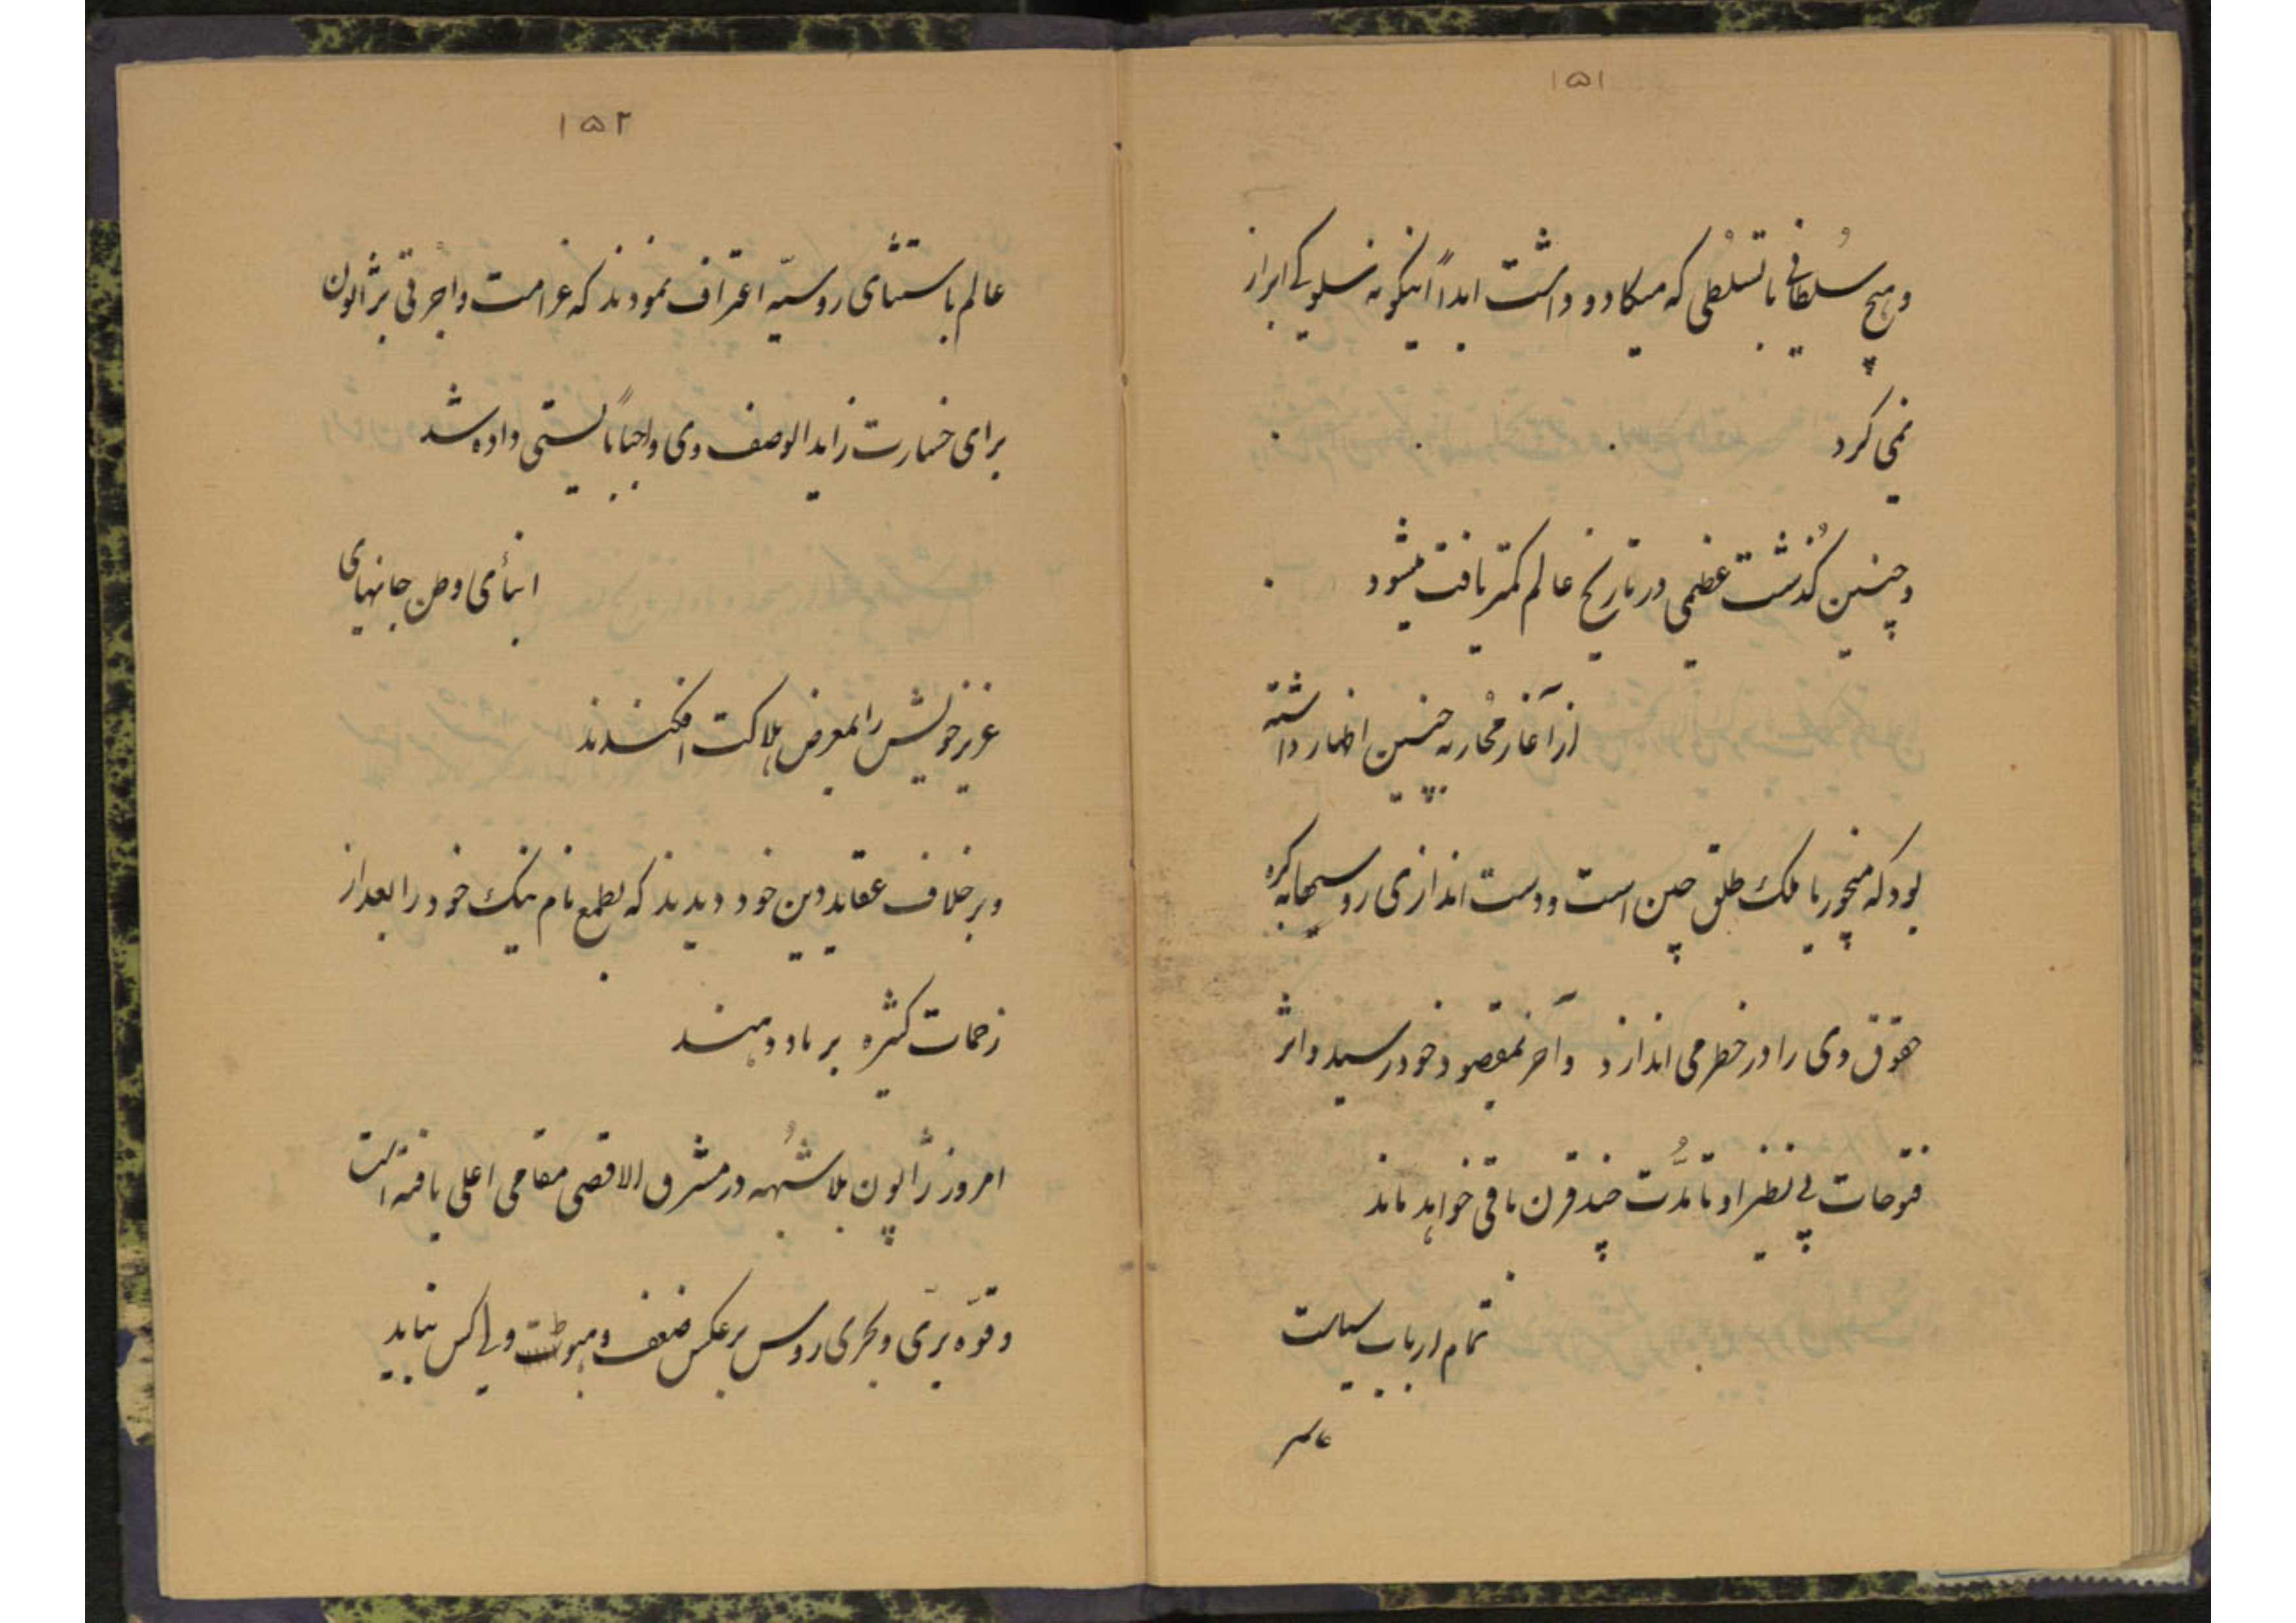 ۱۵۱
و هیچ سُلطانی با تسلّطی که میکادو داشت ابداً اینگونه سلوکی ابراز
نمی کرد
و چنین گذشت عظیمی در تاریخ عالم کمتر یافت میشود
از آغاز مُحاربه چنین اظهار داشته
بود که منچوریا ملک طلق چین است و دست اندازی روسیها به کره
حقوق وی را در خطر می اندازد و آخر بمقصود خود رسید و اثر
فتوحات بی نظیر او تا مدّت چند قرن باقی خواهد ماند
تمام ارباب سیاست
عالم
۱۵۲
عالم باستثنای روسیّه اعتراف نمودند که غرامت و اجرتی بژاپون
برای خسارت زایدالوصف وی واجباً بایستی داده شد
ابنأی وطن جانهای
عزیز خویش را بمعرض هلاکت افکندند
و بر خلاف عقاید دین خود دیدند که بطمع نام نیک خود را بعد از
زحمات کثیره بر باد دهند
امروز ژاپون بلاشُبهه در مشرق الاقصی مقامی اعلی یافته است
و قوّه برّی و بحری روس برعکس ضعف و هبوط ولی کس نباید